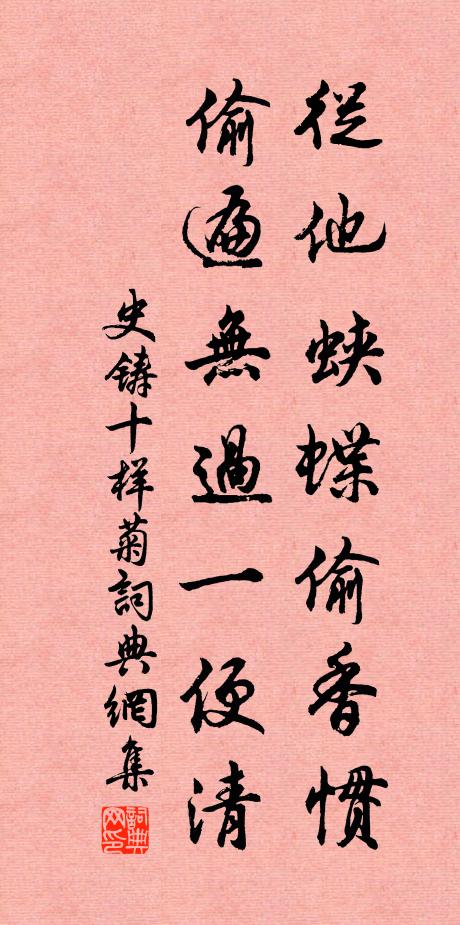 從他蛺蝶偷香慣
偷遍無過一便清
史鑄十样菊詞典網集
詞典网印